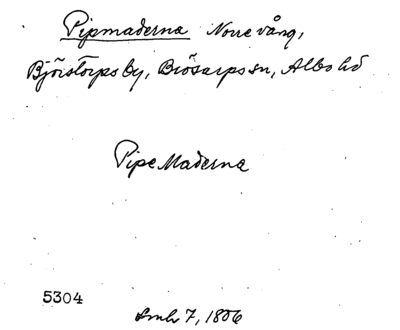 Pipmaderna Norre vång,
Björstorps by, Brösarps sn, Albo hd
Pipe Maderna
5304
Lmh 7, 1806